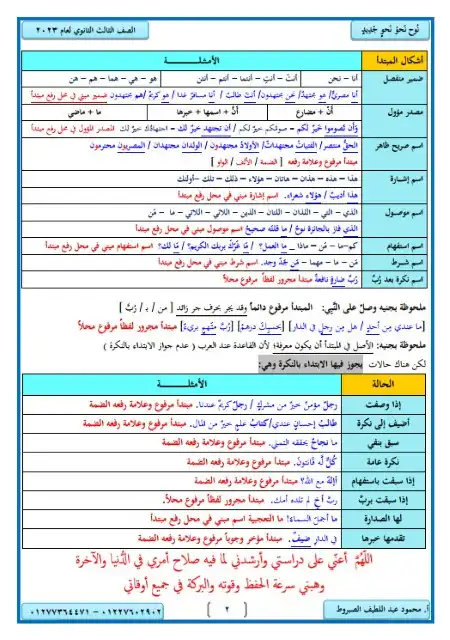 نُوح نَحوَ نَحوٍ جَدِيدٍ
الصف الثالث الثانوي لعام ٢٠٢٣
أشكال المبتدأ
الأمثلـــــة
ضمير منفصل
أنا – نحن
أنتَ – أنتِ – أنتما – أنتم – أنتن
هو – هي – هما – هم – هن
أنا مصريٌّ/ هو مجتهدٌ/ نحن مجتهدون/ أنت طالبٌ / أنا مسافرٌ غدا / هو كريمٌ /هم مجتهدون ضمير مبني في محل رفع مبتدأ
مصدر مؤول
أنْ + مضارع
أنَّ + اسمها + خبرها
ما + ماضي
وَأَن تَصُوموا خَيْرٌ لكُم – صومكم خيرٌ لكم / أن تجتهد خيرٌ لك – اجتهادُك خيرٌ لك المصدر المؤول في محل رفع مبتدأ
اسم صريح ظاهر
الحقُّ منتصر/ الفتياتُ مجتهداتٌ/ الأولادُ مجتهدون / الولدان مجتهدان / المصريون محترمون
مبتدأ مرفوع وعلامة رفعه [ الضمة / الألف / الواو ]
اسم إشارة
هذا – هذه – هذان – هاتان – هؤلاء – ذلك – تلك -أولئك
هذا أديبٌ / هؤلاء شعراء. اسم إشارة مبني في محل رفع مبتدأ
اسم موصول
الذي – التي – اللذان – اللتان – الذين – اللاتي – اللائي – ما - مَن
الذي فاز بالجائزة نوحٌ / ما قلته صحيحٌ اسم موصول مبني في محل رفع مبتدأ
اسم استفهام
كم–ما – مَن – ماذا _ ما العمل؟ / مَا غَرَّكَ بربك الكريم؟ / مَا لك؟ اسم استفهام مبني في محل رفع مبتدأ
اسم شرط
مَن – ما – مهما – مَن يجدّ وجد. اسم شرط مبني في محل رفع مبتدأ
اسم نكرة بعد رُبَّ
رُبَّ ضارةٍ نافعةٌ مبتدأ مجرور لفظاً مرفوع محلاً
ملحوظة بجنيه وصل على النَّبِي: المبتدأ مرفوع دائماً وقد يجر بحرف جر زائد [ من / بـ / رُبَّ ]
[ما عندي مِن أحدٍ / هل مِن رجلٍ في الدار] [بحسبِك درهمٌ] [رُبَّ متهمٍ بريءٌ] مبتدأ مجرور لفظاً مرفوع محلاً
ملحوظة بجنيه: الأصل في المبتدأ أن يكون معرفة؛ لأن القاعدة عند العرب ( عدم جواز الابتداء بالنكرة )
لكن هناك حالات يجوز فيها الابتداء بالنكرة وهي:
الحالة
الأمثلـــــة
إذا وصفت
رجلٌ مؤمنٌ خيرٌ من مشركٍ / رجلٌ كريمٌ عندنا. مبتدأ مرفوع وعلامة رفعه الضمة
أضيف إلى نكرة
طالبُ إحسانٍ عندي/كتابُ علمٍ خيرٌ من المال. مبتدأ مرفوع وعلامة رفعه الضمة
سبق بنفي
ما نجاحٌ يحققه التمني. مبتدأ مرفوع وعلامة رفعه الضمة
نكرة عامة
كُلٌّ لَّه قانتون. مبتدأ مرفوع وعلامة رفعه الضمة
إذا سبقت باستفهام
أإلهٌ مع الله؟ مبتدأ مرفوع وعلامة رفعه الضمة
إذا سبقت بربّ
ربَّ أخٍ لم تلده أمك. مبتدأ مجرور لفظاً مرفوع محلاً.
لها الصدارة
ما أجملَ السماء! ما التعجبية اسم مبني في محل رفع مبتدأ
تقدمها خبرها
في الدارِ ضيفٌ. مبتدأ مؤخر وجوباً مرفوع وعلامة رفعه الضمة
اللَّهُمَّ أعنّي على دراستي وأرشدني لما فيه صلاح أمري في الدُّنيا والآخرة
وهبني سرعة الحفظ وقوته والبركة في جميع أوقاتي
أ. محمود عبد اللطيف الصبروط
٢
٠١٢٢٧٦٠٢٩٠٢ – ٠١٢٧٧٣٦٤٤٧١